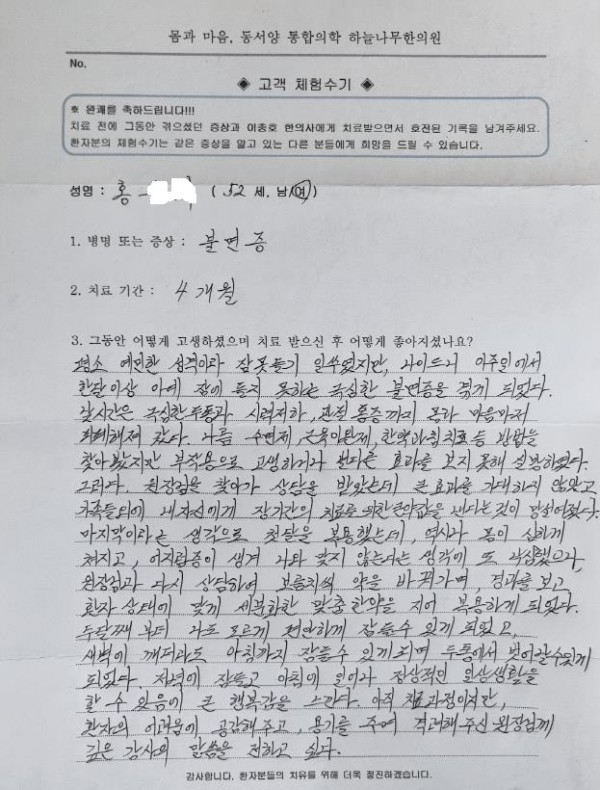 몸과 마음, 동서양 통합의학 하늘나무한의원
No.
◈ 고객 체험수기 ◈
※ 완쾌를 축하드립니다!!!
치료 전에 그동안 겪으셨던 증상과 이종호 한의사에게 치료받으면서 호전된 기록을 남겨주세요.
환자분의 체험수기는 같은 증상을 앓고 있는 다른 분들에게 희망을 드릴 수 있습니다.
성명 : 홍 ( 52 세, 남/여)
1. 병명 또는 증상 : 불면증
2. 치료 기간 : 4개월
3. 그동안 어떻게 고생하셨으며 치료 받으신 후 어떻게 좋아지셨나요?
평소 예민한 성격이라 잠못들기 일쑤였지만, 나이드니 아주일에서
한달이상 아예 잠에 들지 못하는 극심한 불면증을 겪게 되었다.
낮시간은 극심한 두통과 시력저하, 관절 통증까지 몰라 마음마저
피폐해져 갔다. 나름 수면제, 근육이완제, 한약과 침치료 등 방법을
찾아봤지만 부작용으로 고생하거나 별다른 효과를 보지 못해 실망하였다.
그러다. 원장님을 찾아가 상담을 받았는데 큰 효과를 기대하지 않았고
가족들외에 내 자신에게 장기간의 치료로 의한 한약값을 쓴다는것이 망설여졌다.
마지막이라는 생각으로 첫달을 복용했는데, 역시나 몸이 심하게
쳐지고, 어지럼증이 생겨 나와 맞지 않는다는 생각에 또 낙심했으나,
원장님과 다시 상담하여 보름치씩 약을 바꿔가며, 경과를 보고
환자 상태에 맞게 세분화한 맞춤한약을 지어 복용하게 되었다.
두달째 부터 나도 모르게 편안하게 잠들수 있게 되었고,
새벽에 깨더라도 아침까지 잠들수 있게 되며 두통에서 벗어날수있게
되었다. 저녁에 잠들고 아침에 일어나 정상적인 일상생활을
할 수 있음에 큰 행복감을 느낀다. 아직 치료과정이지만,
환자의 어려움에 공감해주고, 용기를 주며 격려해주신 원장님께
깊은 감사의 말씀을 전하고 싶다.
감사합니다. 환자분들의 치유를 위해 더욱 정진하겠습니다.